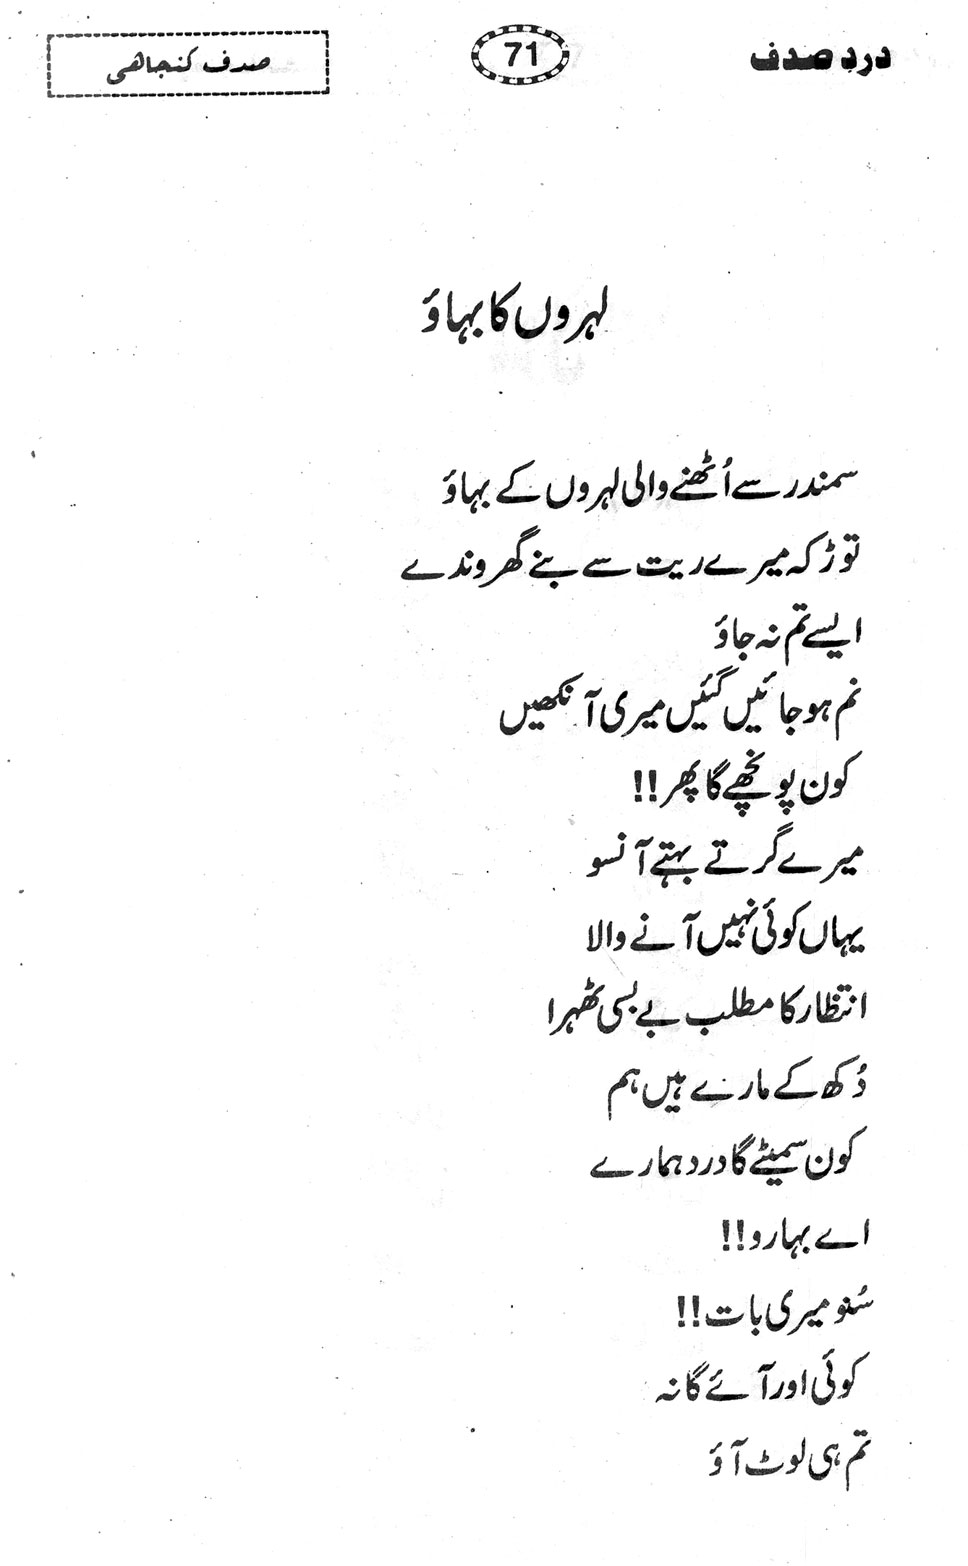 درد صدف
71
صدف کنجاھی
لہروں کا بہاؤ
سمندر سے اُٹھنے والی لہروں کے بہاؤ
توڑ کہ میرے ریت سے بنے گھروندے
ایسے تم نہ جاؤ
نم ہو جائیں گئیں میری آنکھیں
کون پونچھے گا پھر!!
میرے گرتے بہتے آنسو
یہاں کوئی نہیں آنے والا
انتظار کا مطلب بے بسی ٹھہرا
دُکھ کے مارے ہیں ہم
کون سمیٹے گا درد ہمارے
اے بہارو!!
سُنو میری بات!!
کوئی اور آئے گا نہ
تم ہی لوٹ آؤ